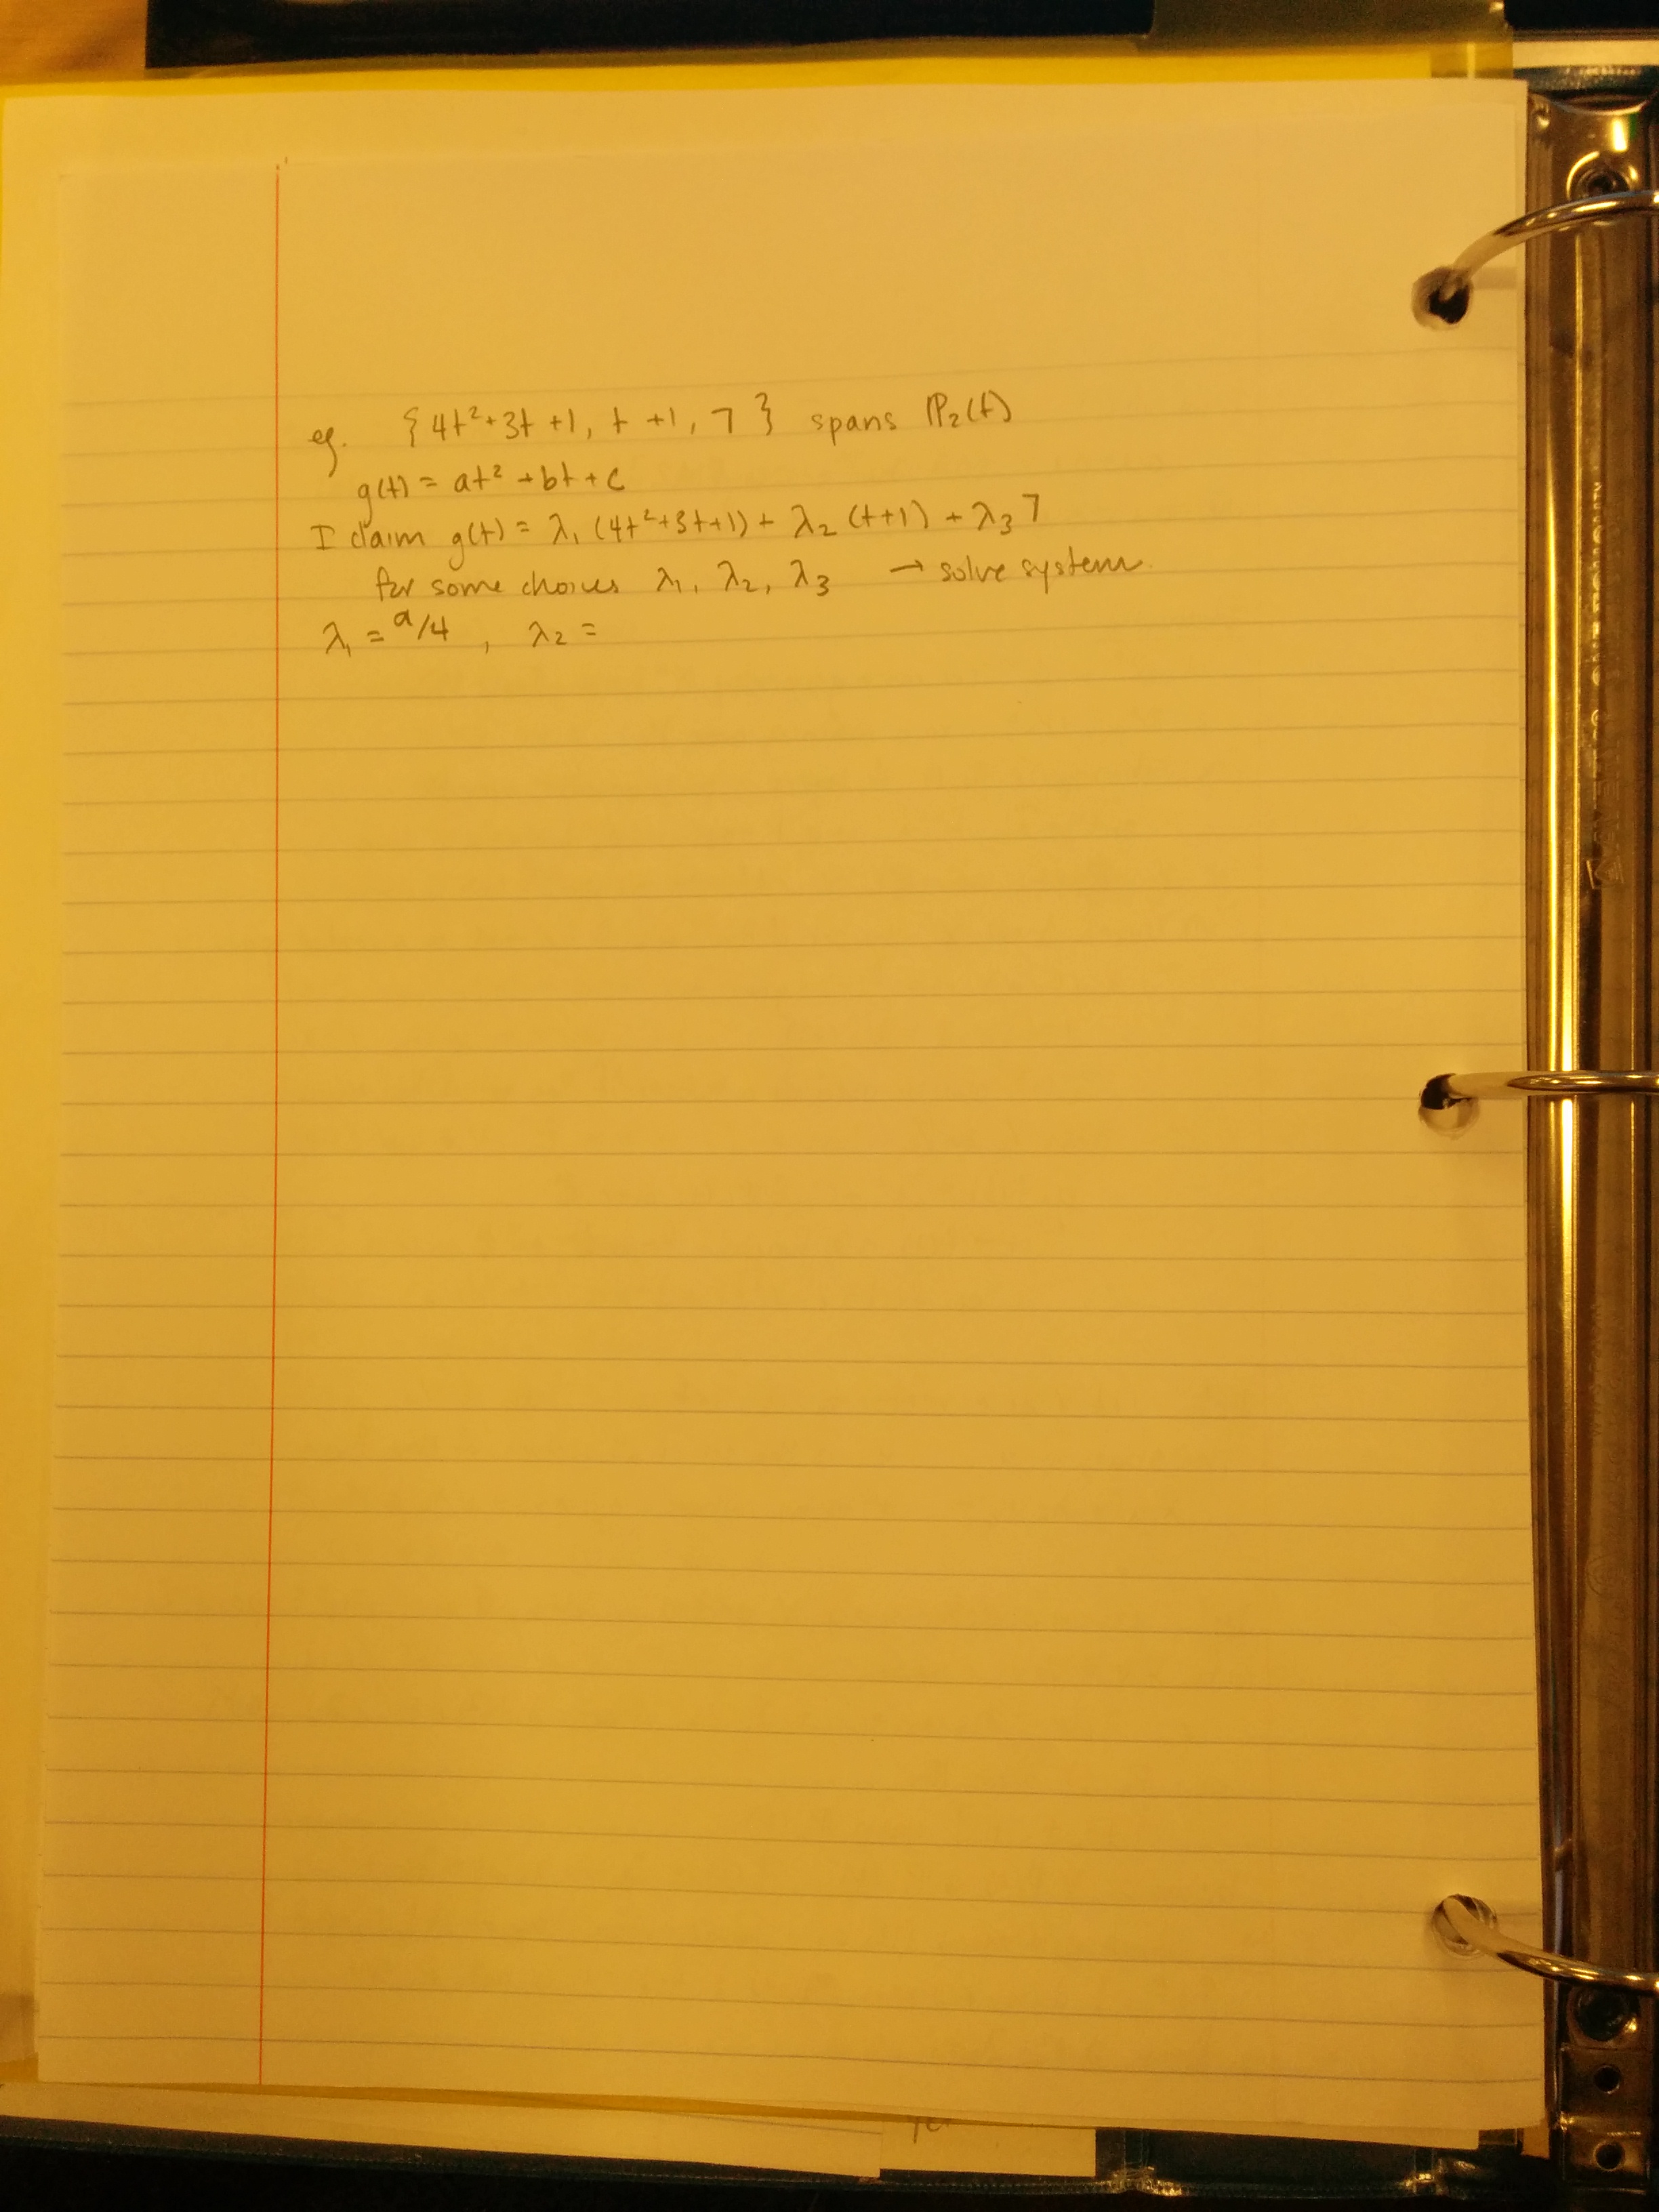 eg. { 4t²+3t+1, t+1, 7 } spans ℙ₂(t)
g(t) = at² + bt + c
I claim g(t) = λ₁ (4t²+3t+1) + λ₂ (t+1) + λ₃ 7
for some choices λ₁, λ₂, λ₃ → solve system
λ₁ = a/4 , λ₂ =